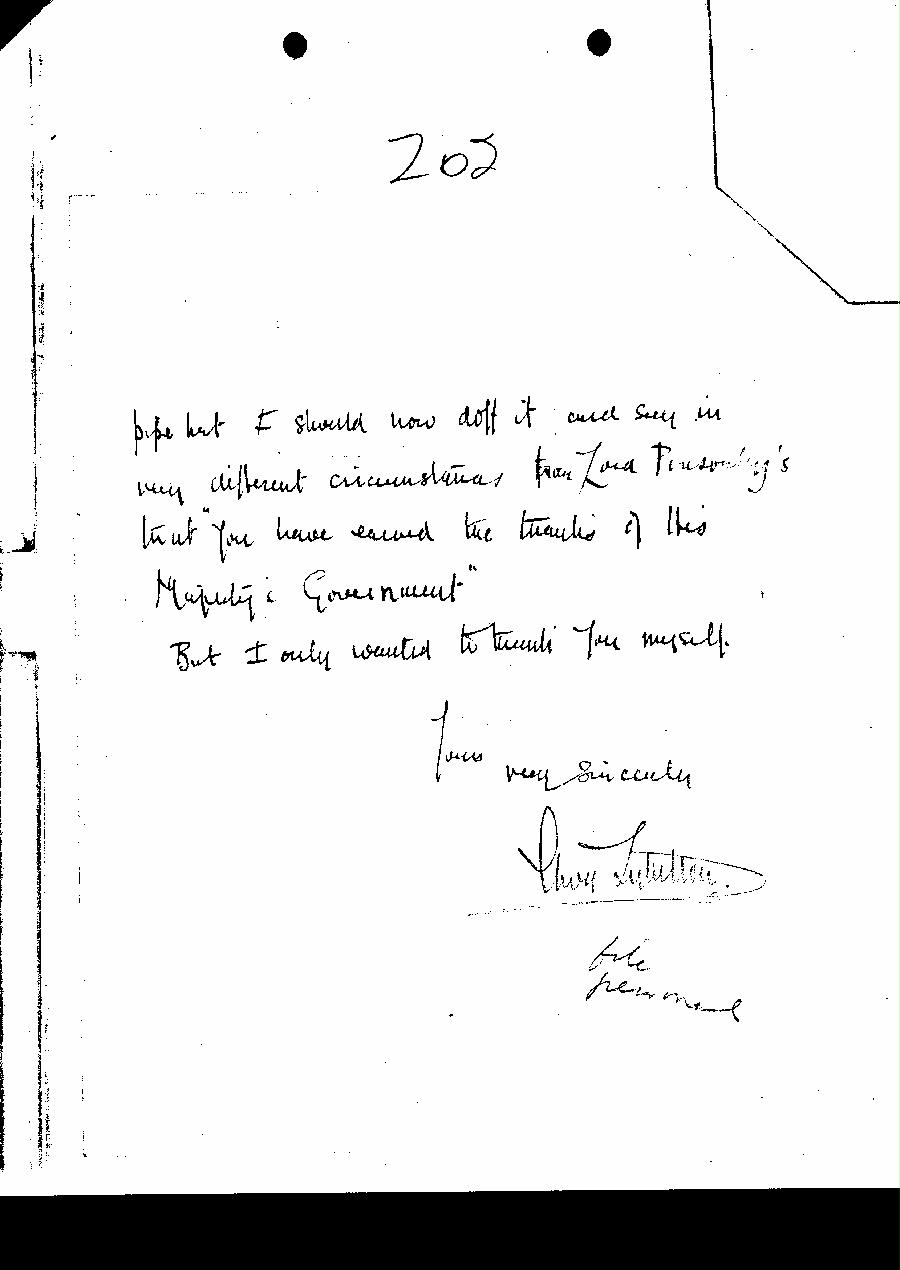 202
pipe hat I should now doff it and say in
very different circumstances from Lord Ponsonby's
that "You have earned the thanks of His
Majesty's Government"
But I only wanted to thank you myself.
Yours
very sincerely
file
personal